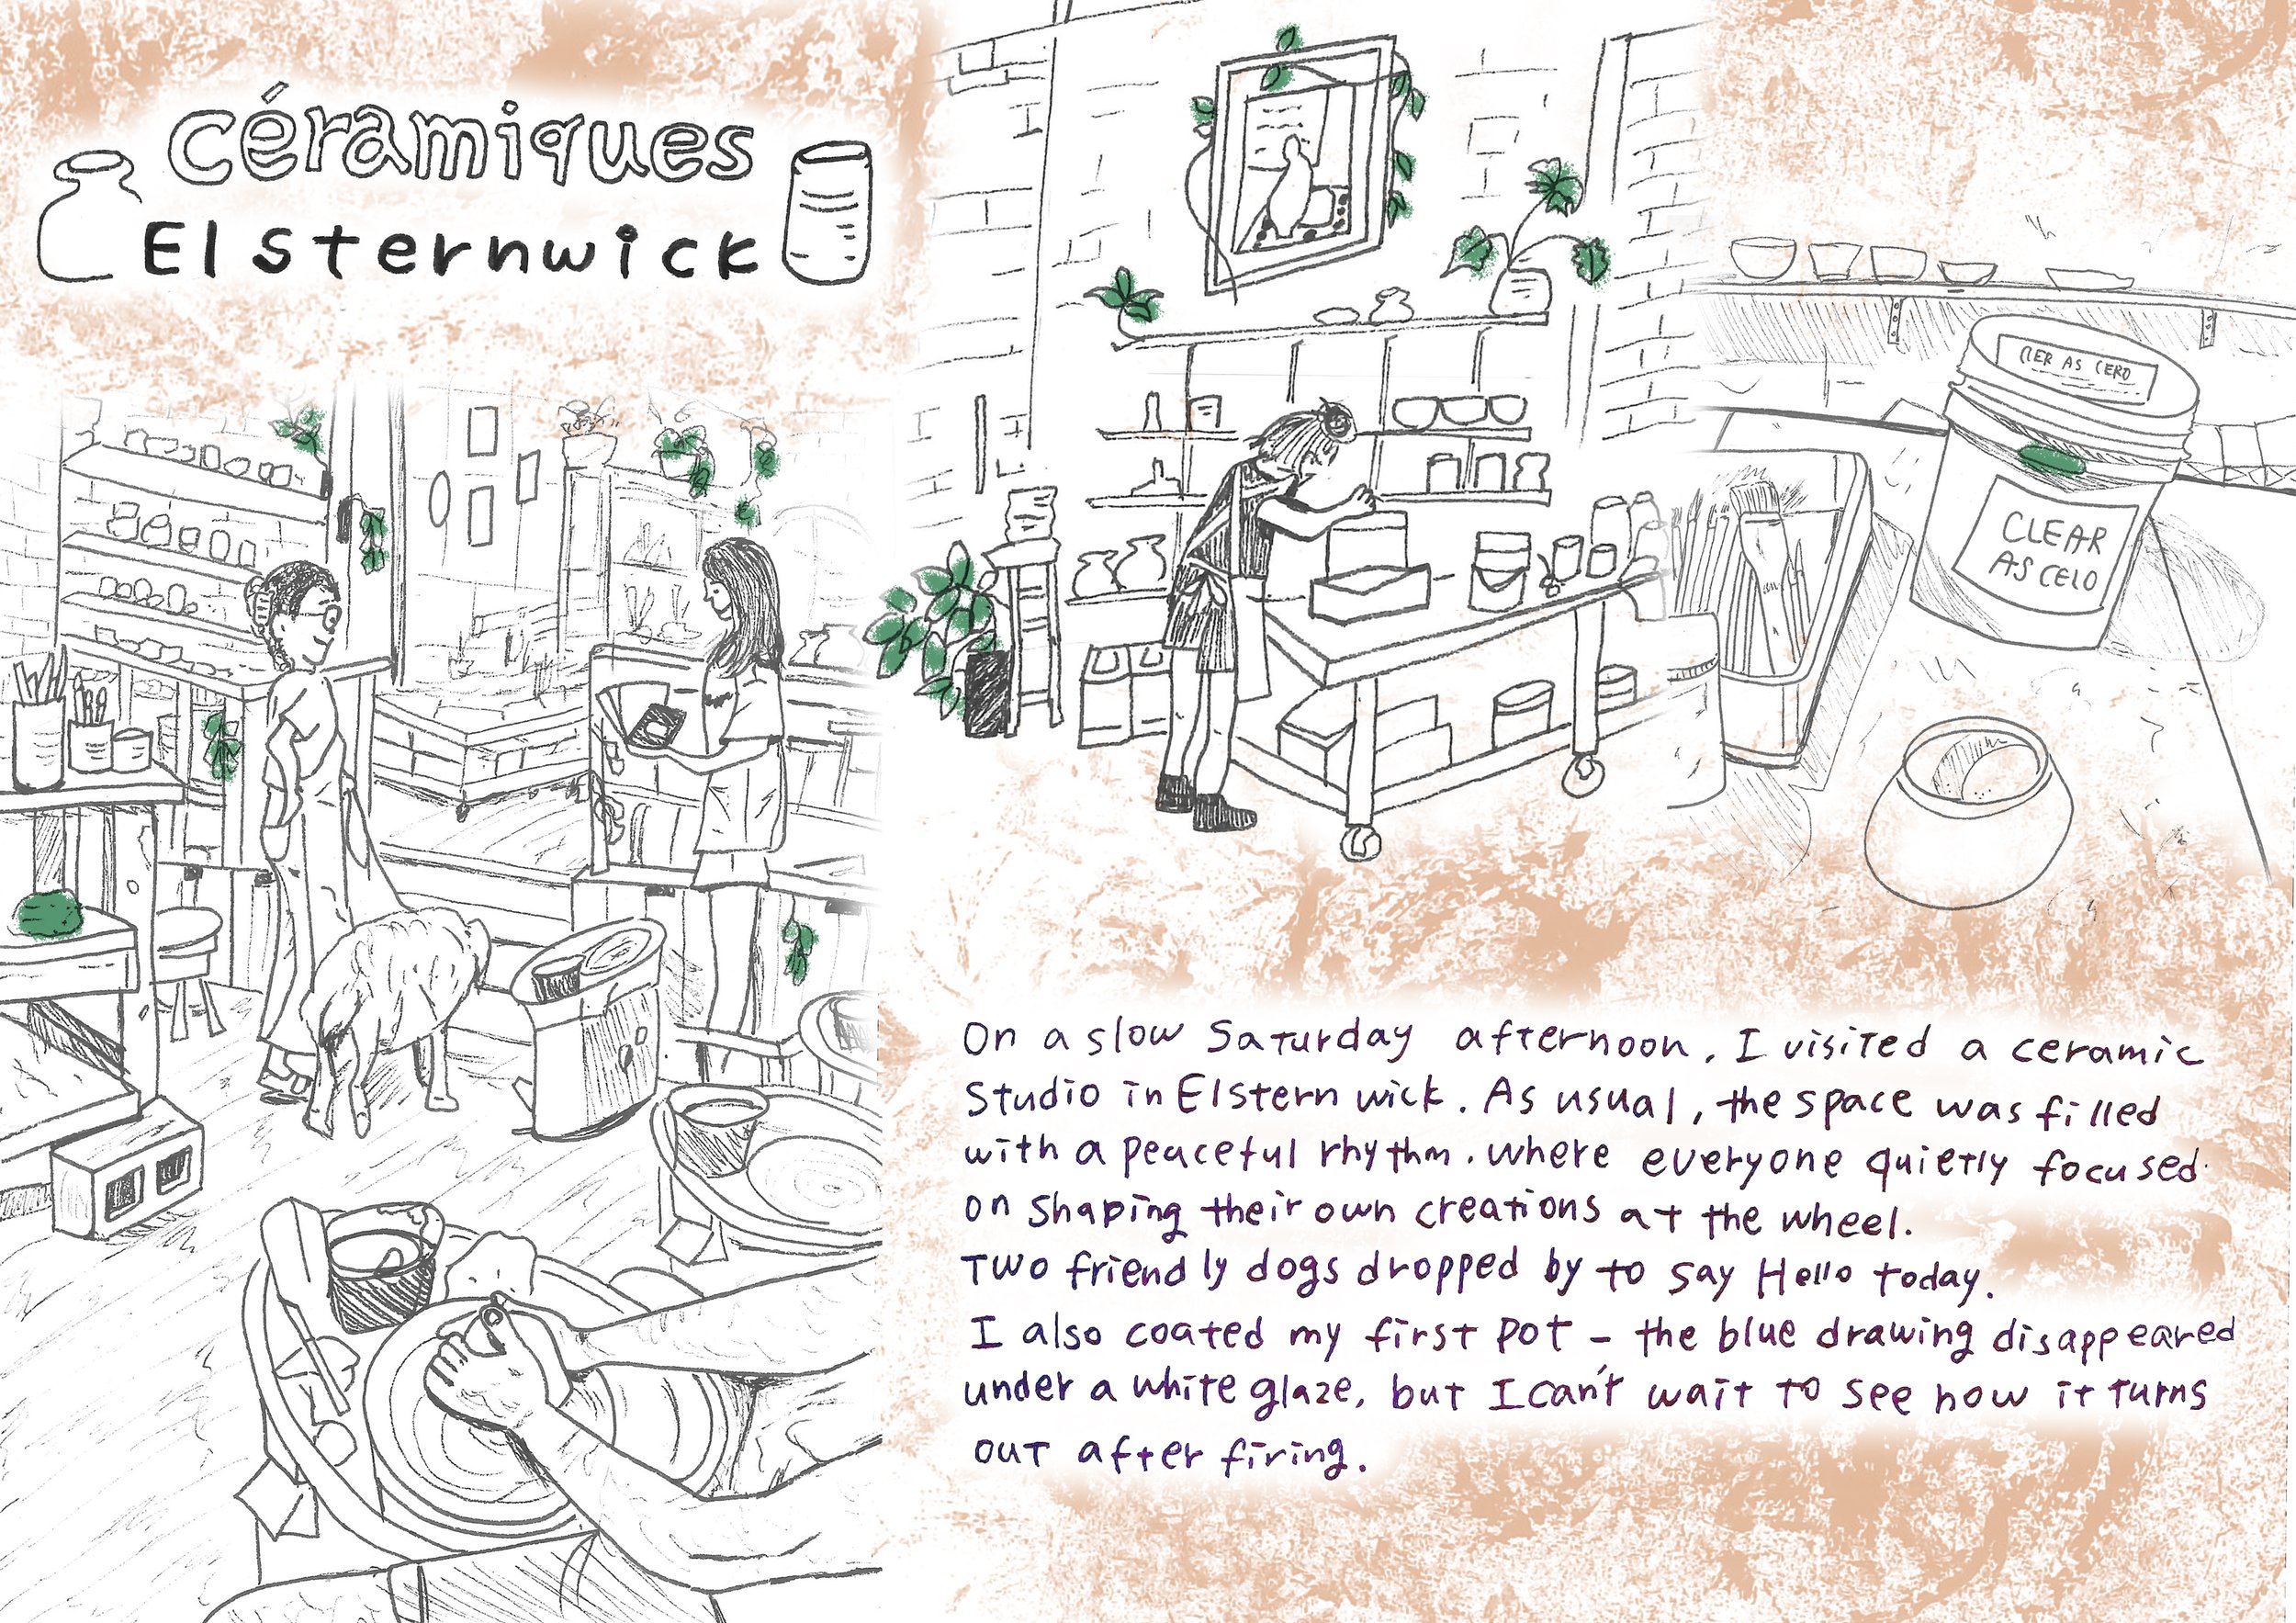 céramiques
Elsternwick
CLEAR
AS CELO
On a slow Saturday afternoon, I visited a ceramic
Studio in Elsternwick. As usual, the space was filled
with a peaceful rhythm. where everyone quietly focused
on shaping their own creations at the wheel.
Two friendly dogs dropped by to say Hello today.
I also coated my first pot – the blue drawing disappeared
under a white glaze, but I can't wait to see how it turns
out after firing.